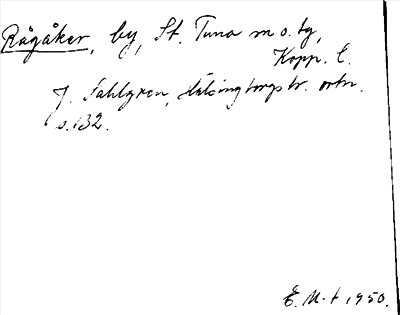 Rågåker, by, St. Tuna sn o. tg,
Kopp. l.
J. Sahlgren, Hälsingborgstr. ortn.
s. 132.
E. M-t 1950.